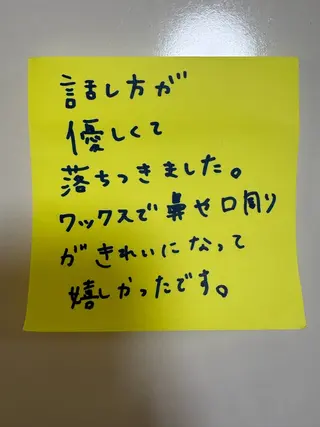 話し方が
優しくて
落ちつきました。
ワックスで鼻や口周り
がきれいになって
嬉しかったです。